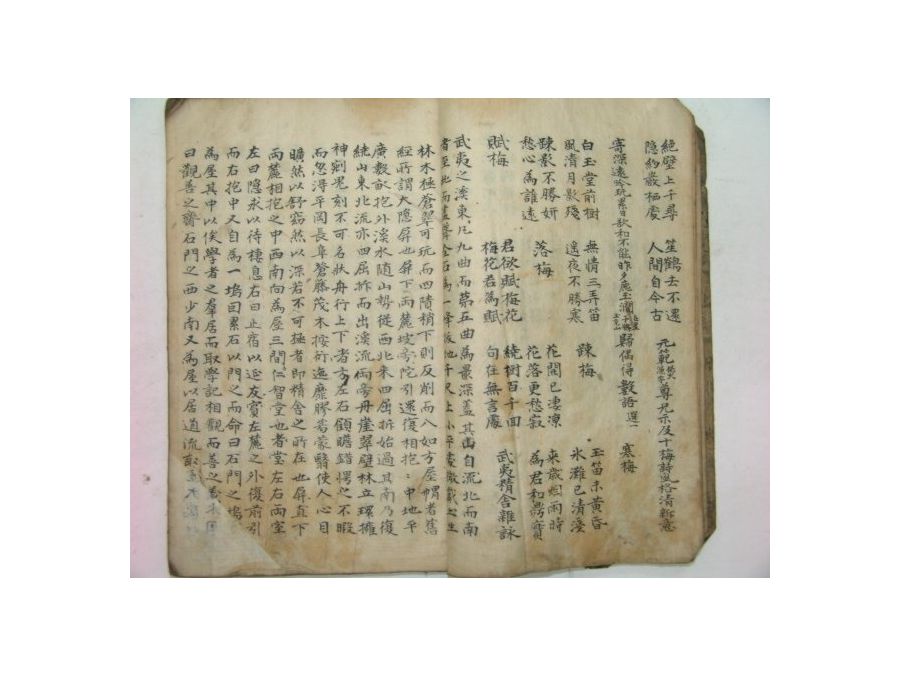 絶壁上千尋 笙鶴去不還 元範尊兄示及十梅詩風格清新意
隱約巖栖處 人間自今古
寄深遠吟玩累日欲和不能昨夕 偶得數語 選一 寒梅
白玉堂前樹 無情三弄笛 踈梅 玉笛未黃昏
風清月影殘 遙夜不勝寒 花開已凄凉 氷灘已清淺
踈影不勝姸 落梅 花落更愁寂 來歲烟雨時
愁心爲誰遠 君欲賦梅花 繞樹百千回 爲君和
賦梅 梅花君爲賦 句在無言處 武夷精舍雜詠
武夷之溪東凡九曲而第五曲爲最深蓋其山自流北而南
者至此而盡
林木極蒼翠可玩而四隤稍下則反削而入如方屋帽者舊
經所謂大隱屏也屏下兩麓坡旁陀引還復相抱中地平
廣數畝抱外溪水隨山勢從西北來四屈折始過其南乃復
繞山東北流亦四屈折而出溪流兩旁丹崖翠壁林立環擁
神剜鬼刻不可名狀舟行上下者方左右顧瞻錯愕之不暇
而忽得平岡長阜蒼藤茂木按衍迤靡膠葛蒙翳使人心目
曠然以舒窈然以深若不可極者即精舍之所在也屏直下
兩麓相抱之中西南向爲屋三間仁智堂也者堂左右兩室
左曰隱求以待棲息右曰止宿以延友賓左麓之外復前引
而右抱中又自爲一塢因累石以門之而命曰石門之塢
爲屋其中以俟學者之羣居而取學記相觀而善之
曰觀善之齋石門之西少南又爲屋以居道流